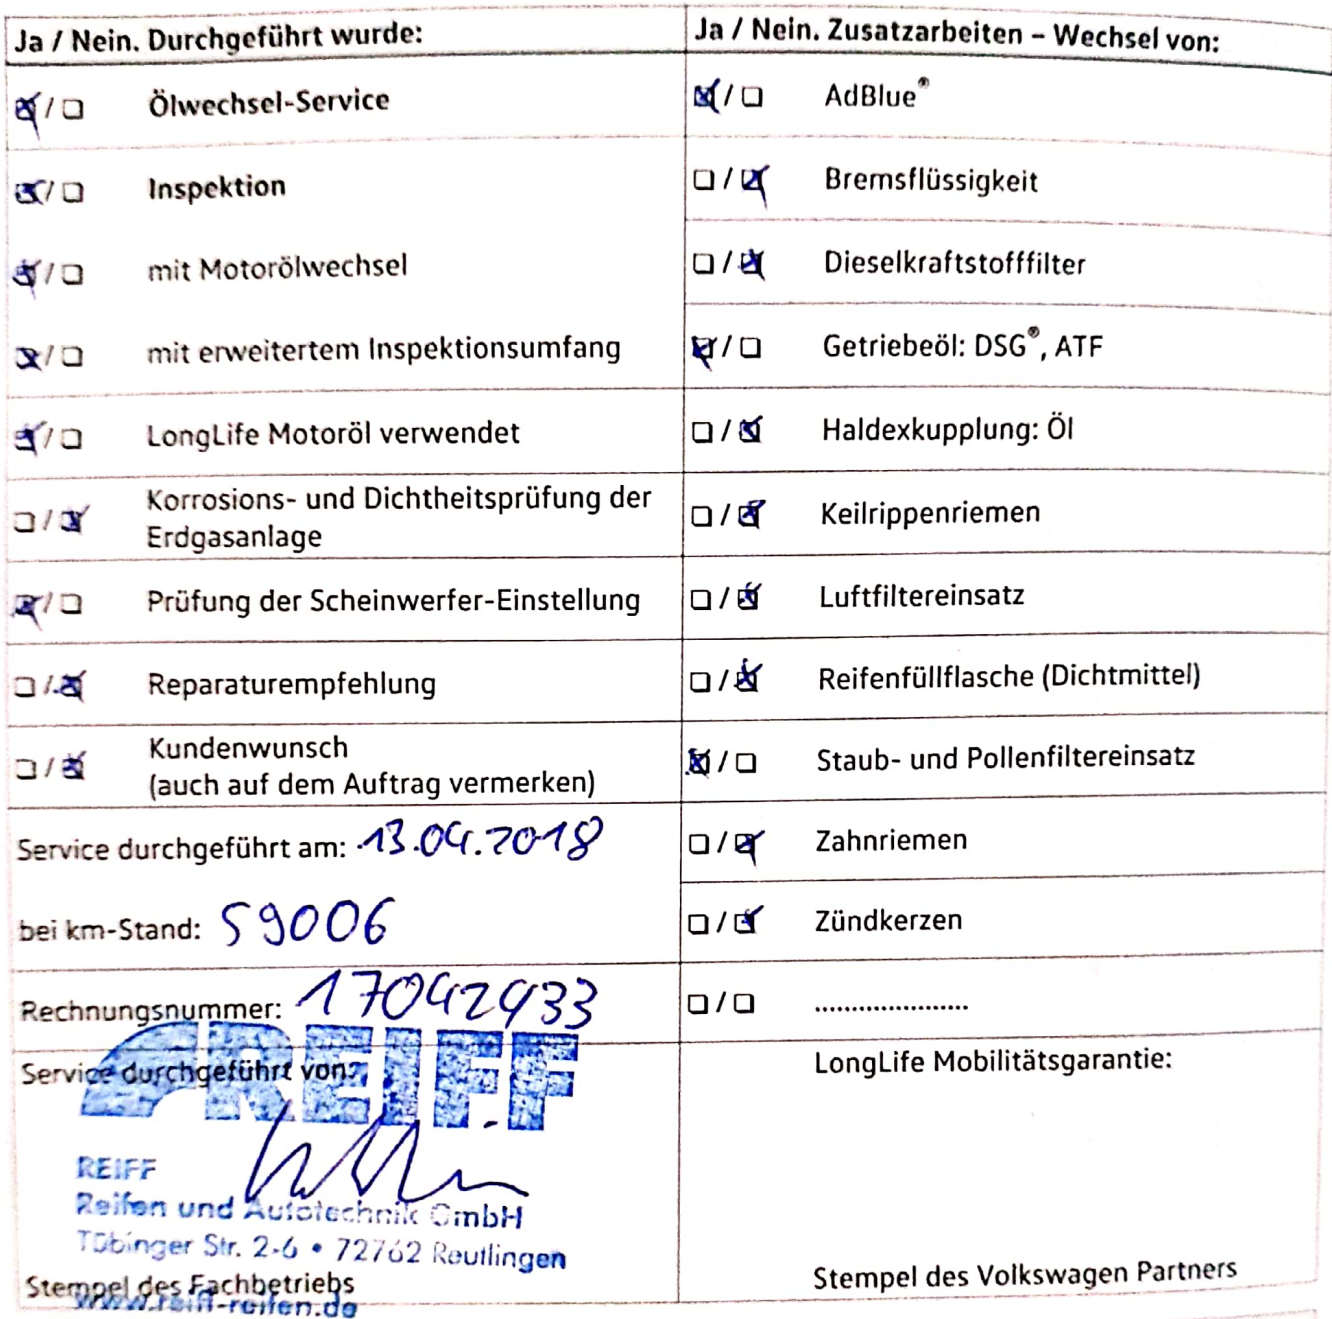 Ja / Nein. Durchgeführt wurde:
☒/☐ Ölwechsel-Service
☒/☐ Inspektion
☒/☐ mit Motorölwechsel
☒/☐ mit erweitertem Inspektionsumfang
☒/☐ LongLife Motoröl verwendet
☐/☒ Korrosions- und Dichtheitsprüfung der
Erdgasanlage
☒/☐ Prüfung der Scheinwerfer-Einstellung
☐/☒ Reparaturempfehlung
☐/☒ Kundenwunsch
(auch auf dem Auftrag vermerken)
Service durchgeführt am: 13.04.2018
bei km-Stand: 59006
Rechnungsnummer: 17042933
Service durchgeführt von:
REIFF
REIFF
Reifen und Autotechnik GmbH
Tübinger Str. 2-6 • 72762 Reutlingen
Stempel des Fachbetriebs
www.reiff-reifen.de
Ja / Nein. Zusatzarbeiten – Wechsel von:
☒/☐ AdBlue®
☐/☒ Bremsflüssigkeit
☐/☒ Dieselkraftstofffilter
☒/☐ Getriebeöl: DSG®, ATF
☐/☒ Haldexkupplung: Öl
☐/☒ Keilrippenriemen
☐/☒ Luftfiltereinsatz
☐/☒ Reifenfüllflasche (Dichtmittel)
☒/☐ Staub- und Pollenfiltereinsatz
☐/☒ Zahnriemen
☐/☒ Zündkerzen
☐/☐ .....................
LongLife Mobilitätsgarantie:
Stempel des Volkswagen Partners